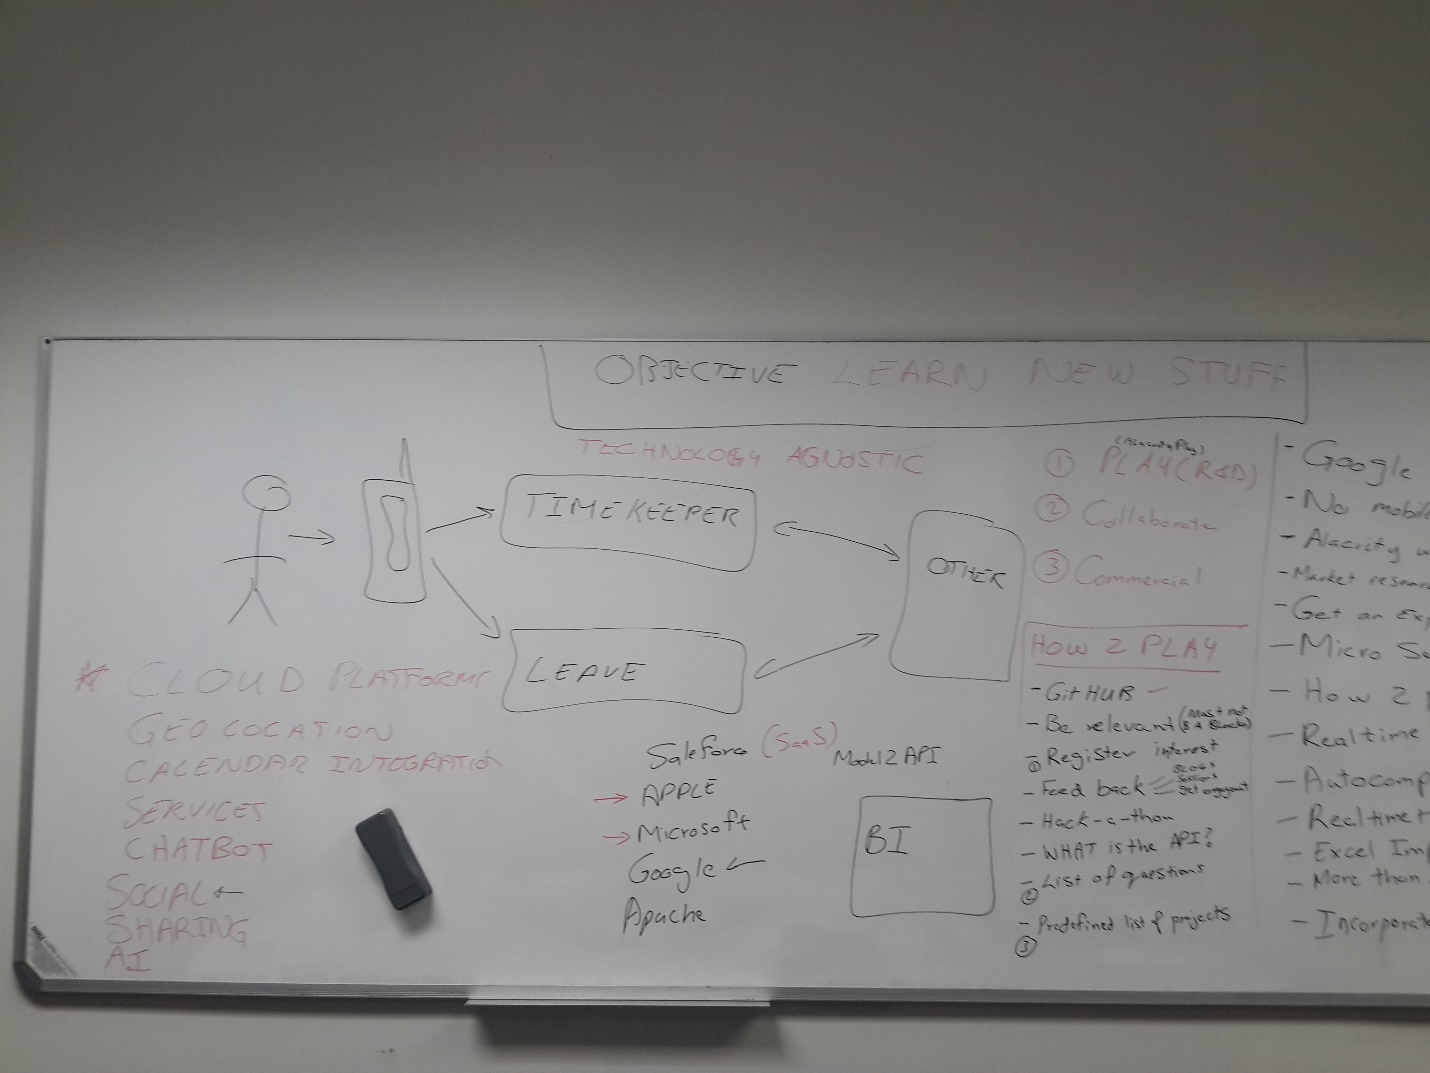 OBJECTIVE LEARN NEW STUFF
TECHNOLOGY AGNOSTIC
TIMEKEEPER
LEAVE
OTHER
* CLOUD PLATFORMS
GEO LOCATION
CALENDAR INTEGRATION
SERVICES
CHATBOT
SOCIAL
SHARING
AI
Saleforce (SaaS)
APPLE
Microsoft
Google
Apache
Model 2 API
BI
① PLAY (R&D)
② Collaborate
③ Commercial
HOW 2 PLAY
- GitHUB -
- Be relevant (Must not
- Register interest
①
- Feed back
- Hack-a-thon
- WHAT is the API?
- List of questions
②
- Predefined list of projects
③
- Google
- No mobile
- Alacrity
- Market resear
- Get an Exp
- Micro Se
- How 2
- Realtime
- Autocomp
- Realtime
- Excel Im
- More than
- Incorporat